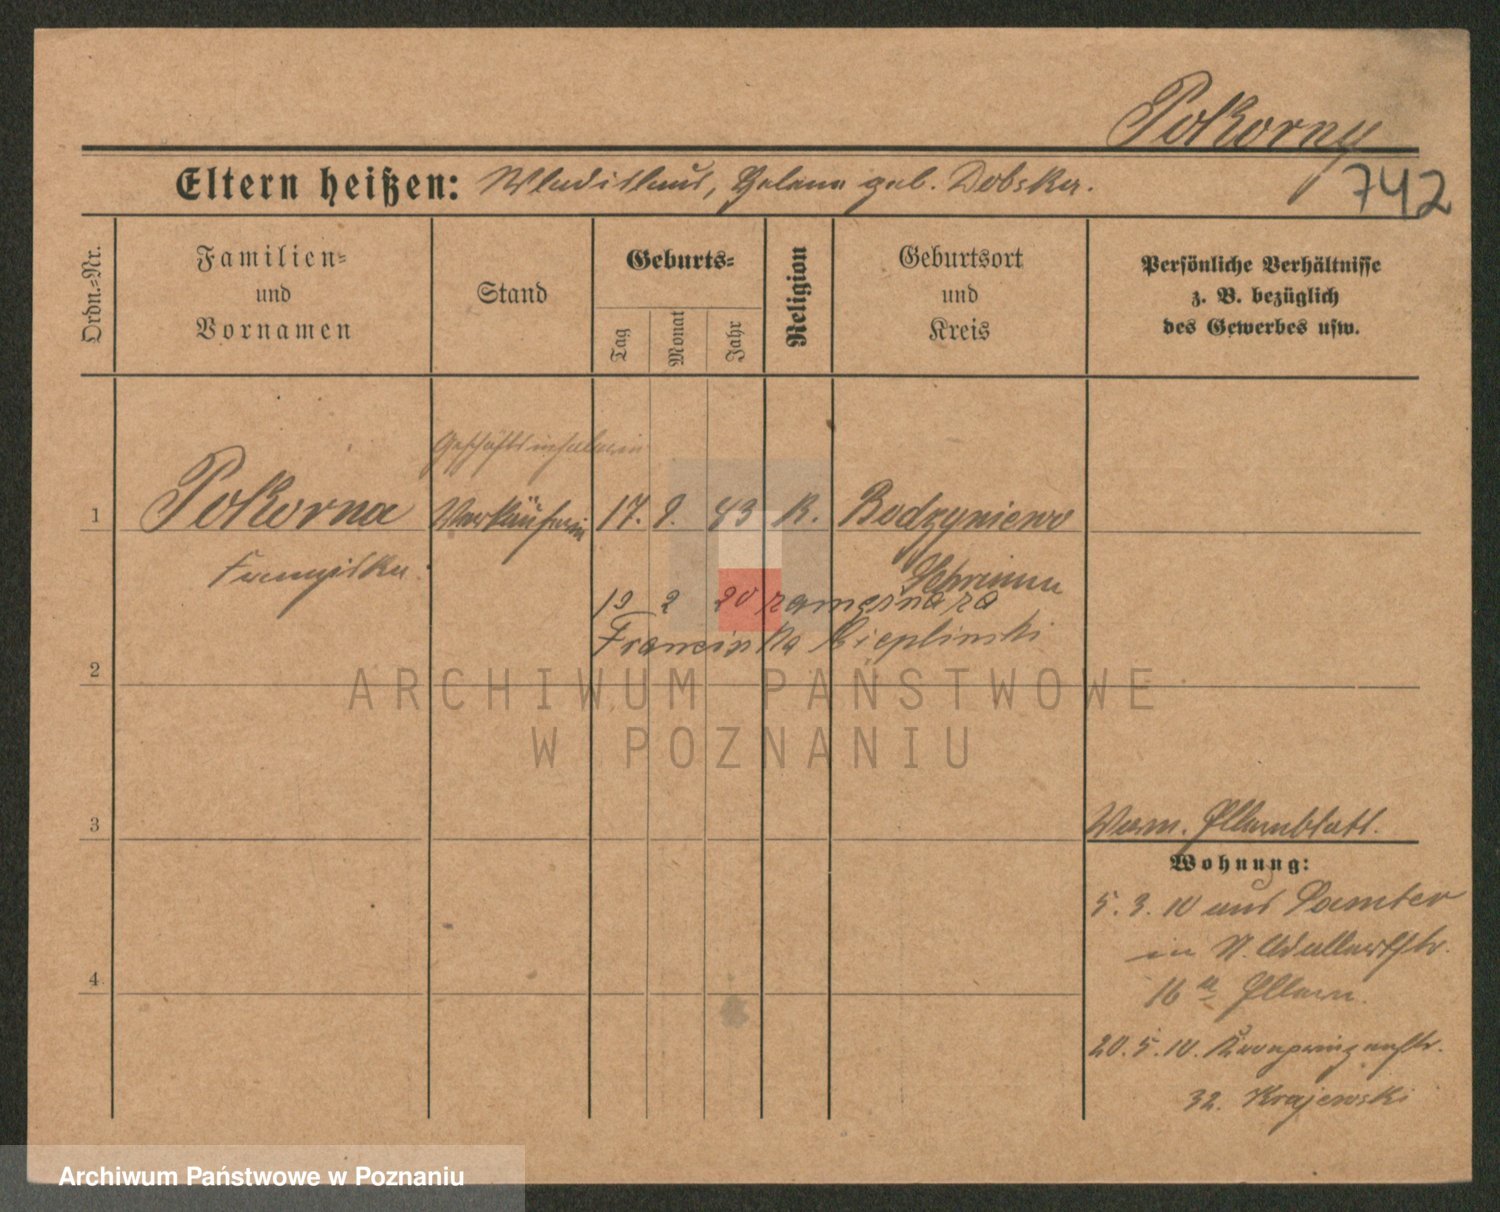 Pokorny
742
Eltern heißen: Wladislaus, Helena geb. Dobska.
Ordn.-Nr.
Familien-
und
Vornamen
Stand
Geburts-
Tag
Monat
Jahr
Religion
Geburtsort
und
Kreis
Persönliche Verhältnisse
z. B. bezüglich
des Gewerbes usw.
Geschäftsinhaberin
1 Pokorna Verkäuferin 17. 9. 83 K. Bodzyniewo
Franziska Schrimm
19 2 20 zamężna za
Franciszka Cieplinski
2
ARCHIWUM PAŃSTWOWE
W POZNANIU
3
Verm. Elternblatt.
Wohnung:
5. 3. 10 aus Samter
in N. Wallwerkstr.
16 Eltern.
20. 5. 10. Kronprinzenstr.
32. Krajewski
4
Archiwum Państwowe w Poznaniu